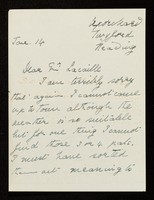 Twyford
Reading
June 16
Dear Mr Lacaille
I am terribly sorry
that again I cannot come
up to town although the
weather is so suitable
but for one thing I cannot
find shoes for a pair.
I must have sorted
them out meaning to